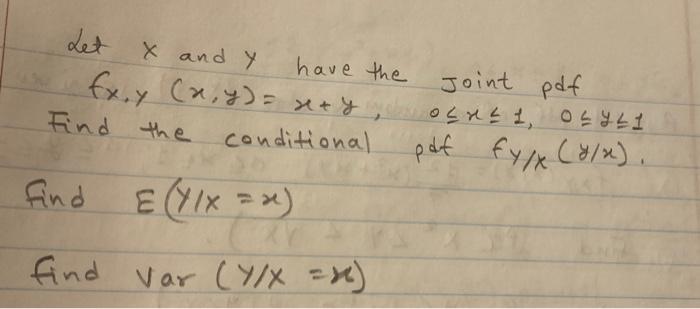 Let x and y have the Joint pdf
fx,y (x,y) = x+y, 0≤x≤1, 0≤y≤1
Find the conditional pdf fy/x (y/x).
Find E(Y/X = x)
find var (Y/X = x)